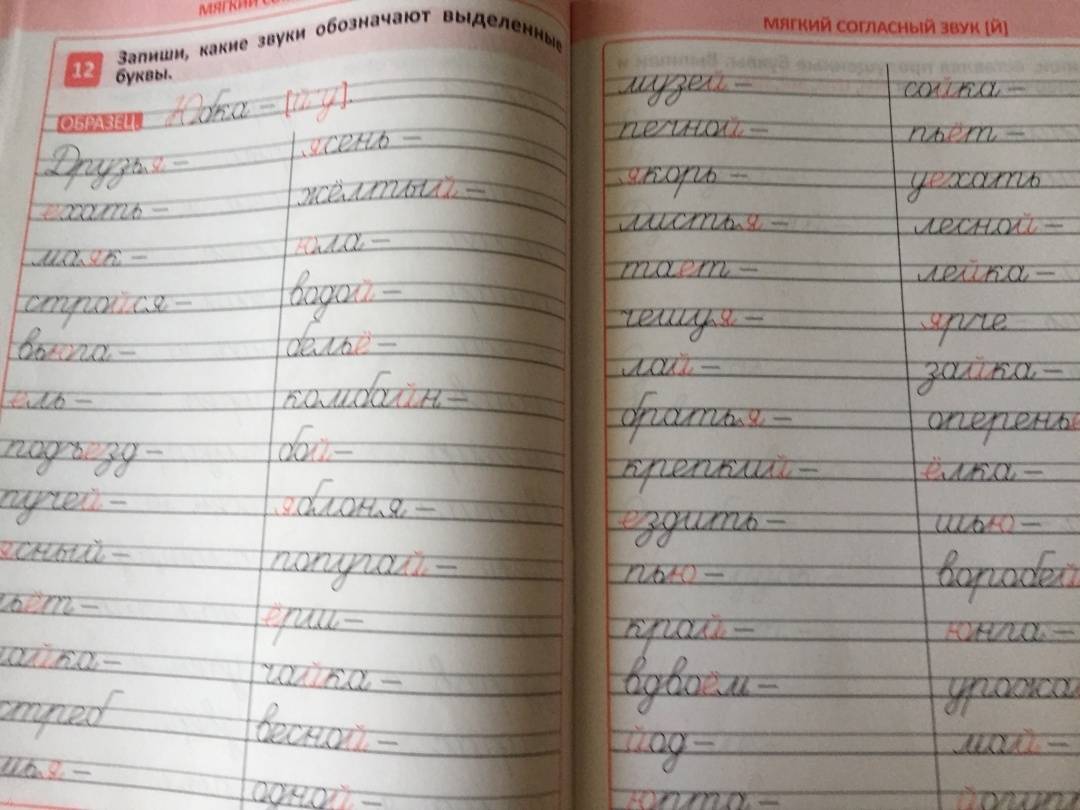 МЯГКИЙ
12 Запиши, какие звуки обозначают выделенные
буквы.
ОБРАЗЕЦ. Юбка – [й'у].
Друзья –
ехать –
маяк –
стройся –
вьюга –
ель –
подъезд –
ясный –
ясень –
жёлтый –
юла –
водой –
бельё –
комбайн –
бой –
яблоня –
попугай –
ёрш –
чайка –
весной –
одной –
МЯГКИЙ СОГЛАСНЫЙ ЗВУК [Й]
музей –
печной –
якорь –
листья –
тает –
чешуя –
лай –
братья –
крепкий –
ездить –
пью –
край –
вдвоём –
йод –
юрта –
сойка –
пьёт –
уехать
лесной –
лейка –
ярче
зайка –
оперенье
ёлка –
шью –
воробей
юнга –
май –